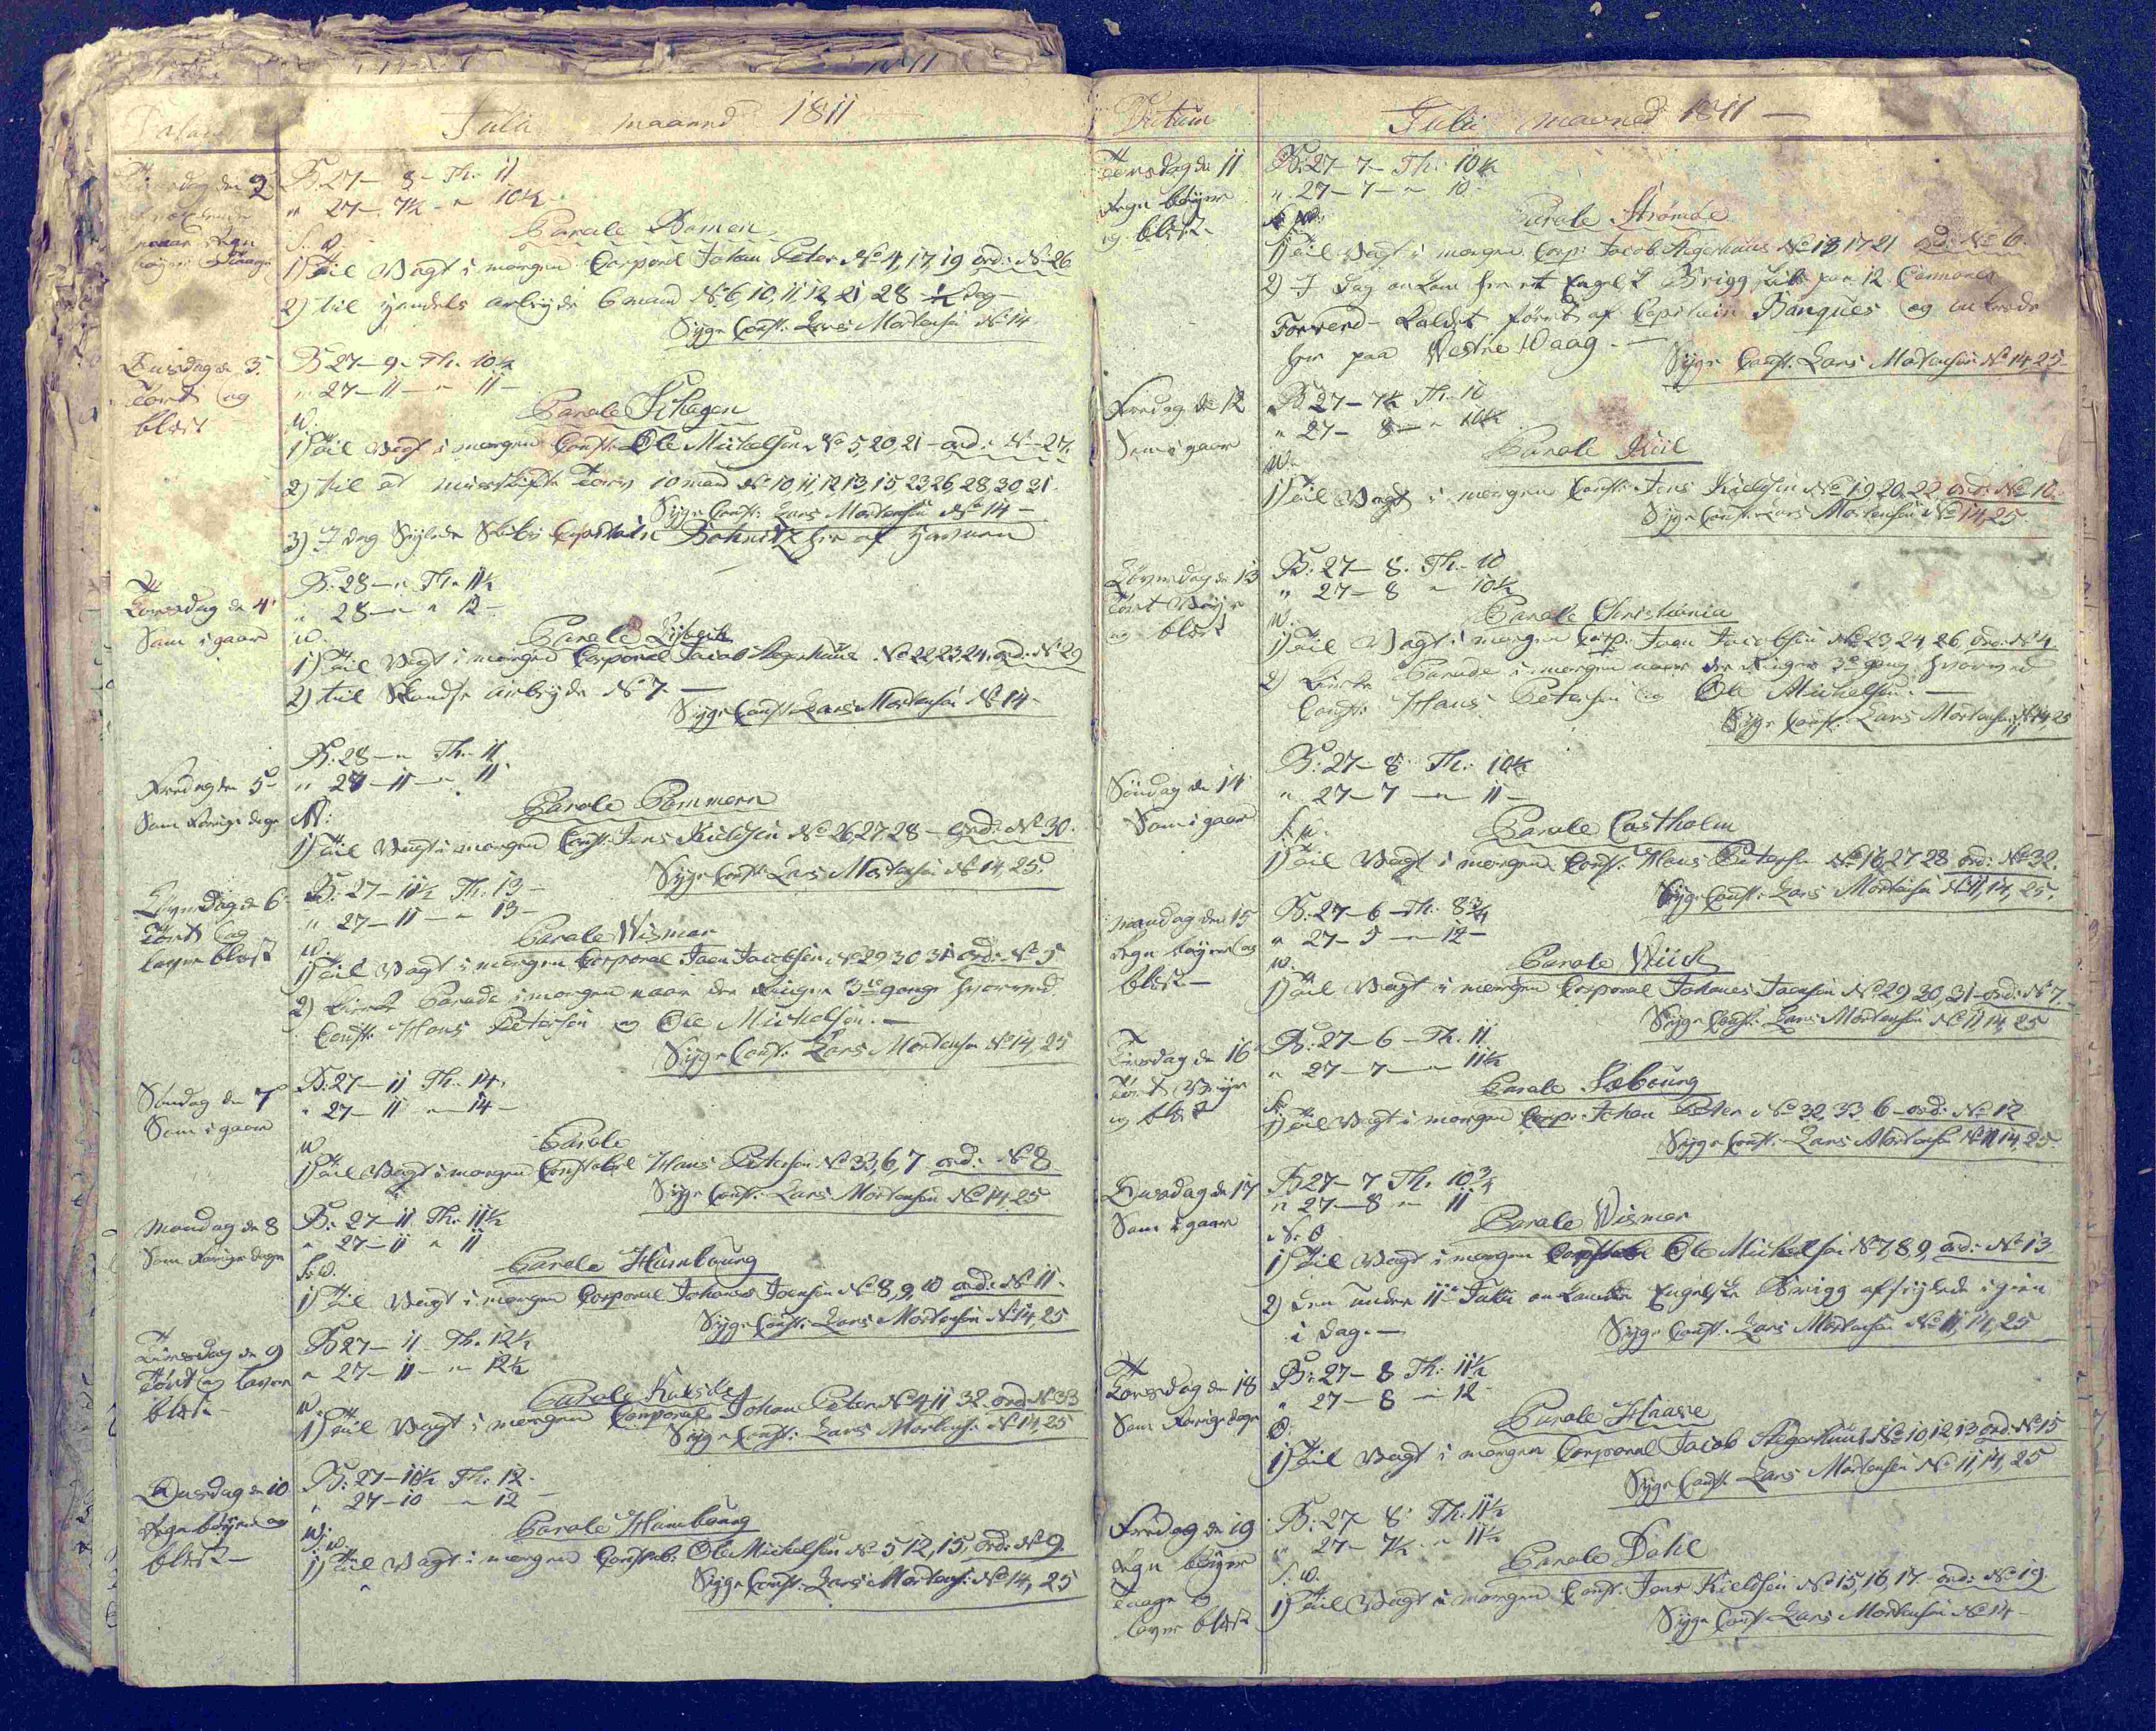 Julii maaned 1811
Tirsdag den 2
B. 27 – 8 – Th. 11
" 27 – 7½ – " 10½
Parole Bomen
1) Til Vagt i morgen Corporal Johan Peter No 4, 17, 19 ord: No 26
2) til arbeyde 6 mand No 6, 10, 11, 12, 21 28 ½ dag
Syge Const. Lars Mortensen No 14
Onsdag d 3.
Tört og
blæst
B 27 – 9 – Th. 10½
" 27 – 11 – " 11 –
W.
Parole Schagen
1) Til Vagt i morgen Const. Ole Michelsen No 5, 20, 21 – ord: No 27.
2) til at Törv 10 mand No 10, 11, 12, 13, 15, 23, 26, 28, 30, 31
Syge Const. Lars Mortensen No 14 –
3) I dag Seylede Capitain her af
Torsdag de 4
Som i gaar
B. 28 – " Th. 11½
" 28 – " " 12 –
W.
Parole
1) Til Vagt i morgen Corporal Jacob Stegerhuus No 22 23 24. ord: No 29
2) til Skandse arbeyde No 7. –
Syge Const. Lars Mortensen No 14 –
Fredag den 5
Som Forrige dage
B: 28 – " Th. 11
" 27 – 11 – " 11
N:
Parole Pommern
1) Til Vagt i morgen Const. Jens Kieldsen No 26, 27 28 – ord: No 30.
Syge Const. Lars Mortensen No 14, 25.
Löverdag d 6
Tört og
blæst
B: 27 – 11½ Th. 13 –
" 27 – 11 – " 13 –
W.
Parole Wismar
1) Til Vagt i morgen Corporal Joen Jacobsen No 29 30 31 ord: No 5
2) Kirke Parade i morgen naar der Ringer 3de gange hvorved
Const. Hans Petersen og Ole Michelsen. –
Syge Const. Lars Mortensen No 14, 25
Söndag den 7
Som i gaar
B: 27 – 11 Th. 14.
" 27 – 11 " – 14 –
W
Parole
1) Til Vagt i morgen Constabel Hans Petersen No 33, 6, 7 ord: No 8
Syge Const. Lars Mortensen No 14, 25
Mandag de 8
Som Forrige dage
B: 27 – 11 Th. 11½
" 27 – 11 " 11
S: W.
Parole Hambourg
1) Til Vagt i morgen Corporal Johanes Joensen No 8, 9, 10 ord: No 11 –
Syge Const. Lars Mortensen No 14, 25
Tirsdag de 9
Tört og
blæst
B 27 – 11 Th. 12½
" 27 – 11 – " 12½
W
Parole
1) Til Vagt i morgen Corporal Johan Peter No 4 11 32. ord No 33
Syge Const: Lars Mortens: No 14, 25
Onsdag de 10
Regn böyer og
blæst –
B: 27 – 11½ Th. 12 –
" 27 – 10 – " 12 –
Parole Hambourg
1) Til Vagt i morgen Constab: Ole Michelsen No 5 12, 15, ord: No 9
Syge Const. Lars Mortens: No 14, 25
Datum
Julii maaned 1811 –
Torsdag de 11
Regn böyer
og blæst –
B: 27 – 7 – Th: 10½
" 27 – 7 – " 10
Parole Strømøe
1) Til Vagt i morgen Corp: Jacob Stegerhuus No 13 17 21 ord: No 6.
2) I Dag ankom her et Engelsk Brigg Skib paa 12 Canoner
Forverd – kaldet förret af Capitain Banques og ankrede
her paa Vestre Waag. –
Syge Const. Lars Mortensen No 14 25 –
Fredag de 12
Som i gaar
B 27 – 7½ Th. 10
" 27 – 8 – " 10½
W.
Parole Kiil
1) Til Vagt i morgen Const. Jens Kieldsen No 19 20, 22, ord: No 10.
Syge Const. Lars Mortensen No 14, 25.
Löverdag de 13
Tört Veyr
og blæst
B: 27 – 8. Th. 10
" 27 – 8 " 10½
W.
Parole Christiania
1) Til Vagt i morgen Corp: Joen Jacobsen No 23, 24, 26 ord: No 4
2) Kirke Parade i morgen naar der Ringer 3de gang hvorved
Const: Hans Petersen og Ole Michelsen. –
Syge Const. Lars Mortensen No 14, 25
Söndag de 14
Som i gaar
B: 27 – 8 Th: 10½
" 27 – 7 – " 11 –
S. W.
Parole Castholm
1) Til Vagt i morgen Const. Hans Petersen No 16, 27 28 ord: No 32.
Syge Const. Lars Mortensen No 11, 14, 25.
Mandag den 15
Regn böyer og
blæst –
B: 27 – 6 – Th. 8¾
" 27 – 5 – " 12 –
W.
Parole Wiick
1) Til Vagt i morgen Corporal Johanes Joensen No 29 30, 31 – ord: No 7.
Syge Const. Lars Mortensen No 11 14, 25
Tirsdag de 16
Tört Veyr
og blæst
B: 27 – 6 – Th. 11
" 27 – 7 – " 11½
Parole
1) Til Vagt i morgen Corp: Johan Peter No 32, 33 6 – ord: No 12
Syge Const. Lars Mortensen No 11 14, 25 –
Onsdag de 17
Som i gaar
B 27 – 7 Th. 10¾
" 27 – 8 " 11
N. O
Parole Wismar
1) Til Vagt i morgen Constabel Ole Michelsen No 7 8 9, ord: No 13
2) Den under 11te Julii ankomne Engelske Brigg afseylede igien
i Dag. –
Syge Const. Lars Mortensen No 11, 14, 25
Torsdag den 18
Som Forrige dage
B: 27 – 8 Th: 11½
" 27 – 8 – " 12
O.
Parole Haare
1) Til Vagt i morgen Corporal Jacob Stegerhuus No 10, 12 13 ord: No 15
Syge Const. Lars Mortensen No 11, 14, 25
Fredag de 19
Regn böyer
Taage og
blæst
B: 27 8 Th: 11½
" 27 – 7½ – " 11½
S. W.
Parole Dahl
1) Til Vagt i morgen Const. Jens Kieldsen No 15, 16, 17. ord: No 19.
Syge Const. Lars Mortensen No 14 –